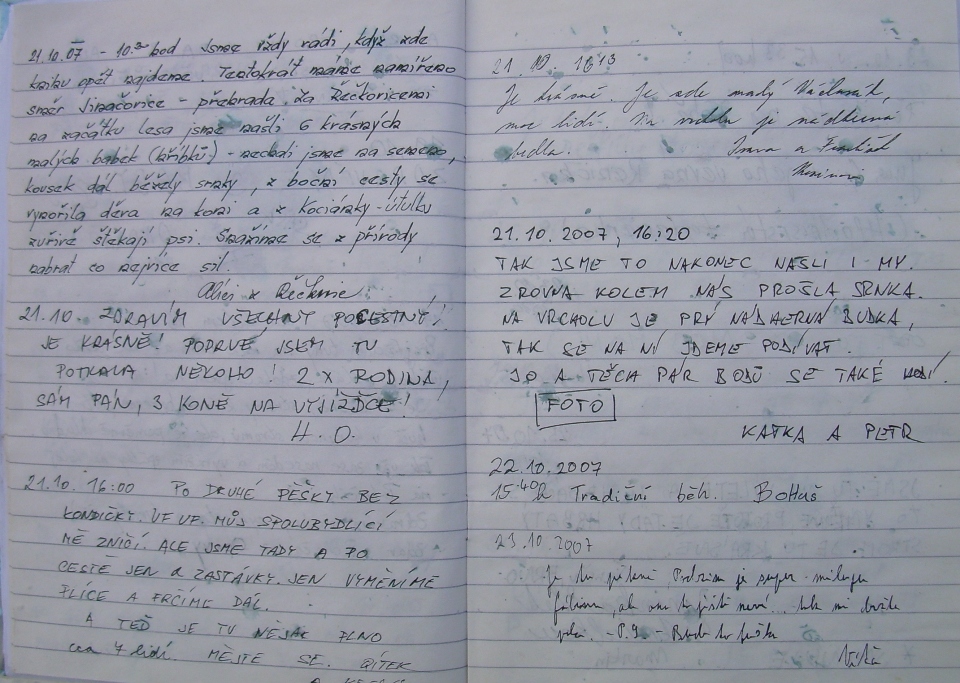 21.10.07 - 10.30 hod Jsme vždy rádi, když zde
knihu opět najdeme. Tentokrát máme namířeno
směr Jinačovice - přehrada. Za Řečkovicemi
na začátku lesa jsme našli 6 krásných
malých babek (hříbků) - nechali jsme na semeno,
kousek dál běžely srnky, z boční cesty se
vynořila děva na koni a z Kociánky - útulku
zuřivě štěkají psi. Snažíme se z přírody
nabrat co nejvíce sil.
21.10. ZDRAVÍM VŠECHNY POCESTNÝ!
JE KRÁSNĚ! POPRVÉ JSEM TU
POTKALA NĚKOHO! 2 X RODINA,
SÁM PÁN, 3 KONĚ NA VYJÍŽĎCE!
H. O.
21.10. 16:00 PO DRUHÉ PĚŠKY - BEZ
KONDIČKY. UF UF. MŮJ SPOLUBYDLÍCÍ
MĚ ZNIČÍ. ALE JSME TADY A PO
CESTE JEN 2 ZASTÁVKY. JEN VYMĚNÍME
PLÍCE A FRČÍME DÁL.
A TEĎ JE TU NĚJAK PLNO
cca 7 lidí. MĚJTE SE.
21. 10. 16 13
Je krásně. Je zde malý Václavák,
moc lidí. Na vrcholu je nádherná
21.10.2007, 16:20
TAK JSME TO NAKONEC NAŠLI I MY.
ZROVNA KOLEM NÁS PROŠLA SRNKA.
NA VRCHOLU JE PRÝ NÁDHERNÁ BUDKA,
TAK SE NA NÍ JDEME PODÍVAT.
JO A TĚCH PÁR BODŮ SE TAKÉ HODÍ.
FOTO
KATKA A PETR
22.10.2007
15 40h Tradiční běh. Bohuš
23.10.2007
Je tu pěkně. Podzim je super